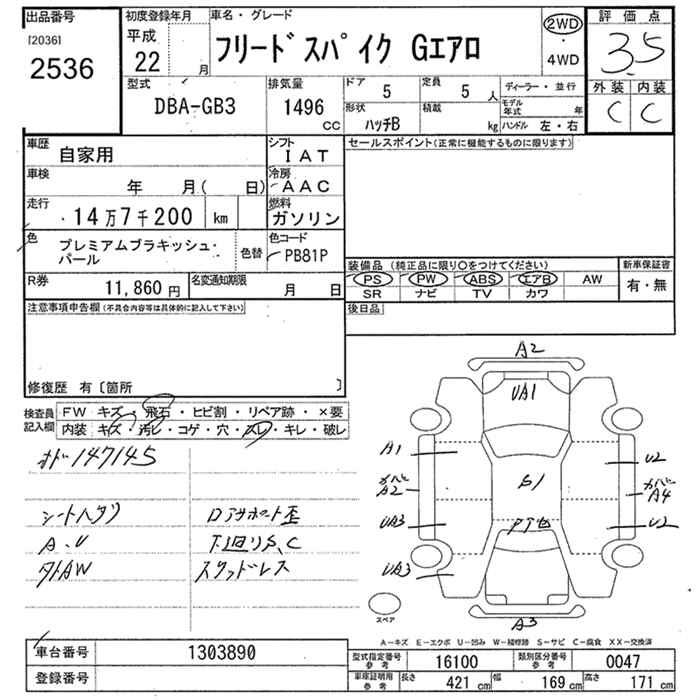 出品番号
[2036]
2536
初度登録年月
平成
22 月
車名・グレード
フリードスパイク Gエアロ
2WD
・
4WD
評価点
3.5
外装 内装
C C
型式
DBA-GB3
排気量
1496
CC
ドア
5
定員
5 人
形状
ハッチB
積載
kg
ディーラー・並行
モデル年式 年
ハンドル 左・右
車歴
自家用
シフト
IAT
車検
年 月( 日)
冷房
AAC
走行
14万7千200 km
燃料
ガソリン
色
プレミアムブラキッシュ・
パール
色替
色コード
PB81P
R券
11,860 円
名変通知期限
月 日
セールスポイント(正常に機能するものに限ります)
装備品 (純正品に限り○をつけてください)
PS PW ABS エアB AW
SR ナビ TV カワ
新車保証書
有・無
後日品
注意事項申告欄(不具合内容等は具体的に記入して下さい)
修復歴 有〔箇所 〕
検査員
記入欄
FW キズ・飛石・ヒビ割・リペア跡・×要
内装 キズ・汚レ・コゲ・穴・スレ・キレ・破レ
147145
シートヘタリ
A.U
下回りS,C
スタッドレス
A2
UA1
A1
A2
UA3
UA3
S1
U2
A4
U2
A3
スペア
A-キズ E-エクボ U-凹み W-補修跡 S-サビ C-腐食 XX-交換済
車台番号
1303890
登録番号
型式指定番号
参考
16100
類別区分番号
参考
0047
車庫証明用
参考
長さ 421 cm 幅 169 cm 高さ 171 cm